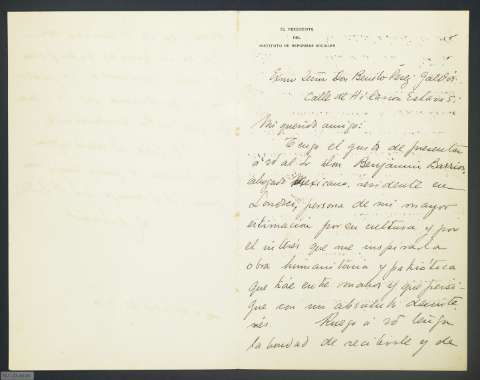 EL PRESIDENTE
DEL
INSTITUTO DE REFORMAS SOCIALES
Exmo Señor Don Benito Pérez Galdós
Calle de Hilarión Eslava 5.
Mi querido amigo:
Tengo el gusto de presentar
á vd al Sr don Benjamin Barrios,
abogado Mexicano, residente en
Londres, persona de mi mayor
estimación por su cultura y por
el interés que me inspira la
obra humanitaria y patriótica
que trae entre manos y que persi-
gue con un absoluto desinte-
rés. Ruego á vd tenga
la bondad de recibirle y de